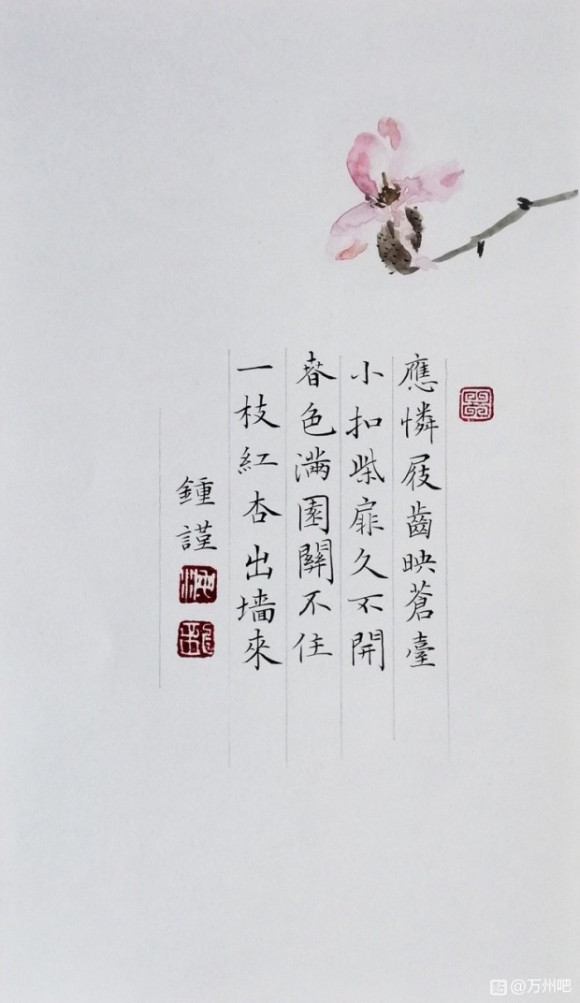 應憐屐齒映蒼臺
小扣柴扉久不開
春色滿園關不住
一枝紅杏出墻來
鍾謹
@万州吧